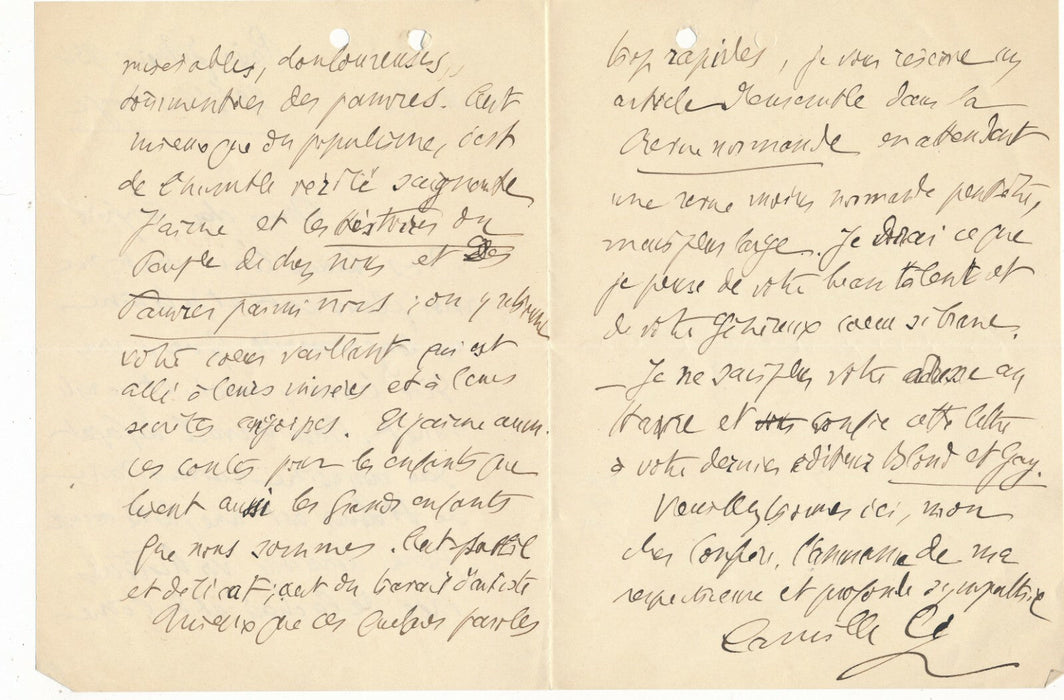 misérables, douloureuses,
des pauvres. C'est
mieux que du populisme, c'est
de l'humble vérité saignante
J'aime et les histoires du
Peuple de chez nous et des
Pauvres parmi nous ; on y retrouve
votre coeur vaillant qui est
allé à leurs misères et à leurs
secrètes angoisses. Et j'aime aussi
ces contes pour les enfants que
lisent aussi les grands enfants
que nous sommes. C'est
et délicat ; c'est du travail d'artiste
Mieux que ces quelques paroles
trop rapides, je vous réserve un
article d'ensemble dans la
Revue normande en attendant
une revue moins normande peut-être,
mais plus large. Je dirai ce que
je pense de votre beau talent et
de votre généreux coeur si brave.
— Je ne sais plus votre adresse au
Havre et confie cette lettre
à votre dernier éditeur Bloud et Gay.
Veuillez trouver ici, mon
cher confrère, de ma
respectueuse et profonde sympathie
Camille Cé